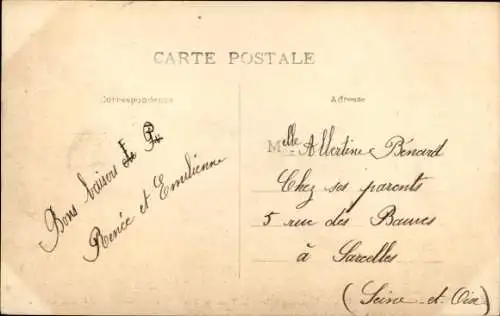 CARTE POSTALE
Correspondance
Adresse
Bons baisers
Renée et Emilienne
Melle Albertine Bénard
Chez ses parents
5 rue des
à Sarcelles
(Seine-et-Oise)